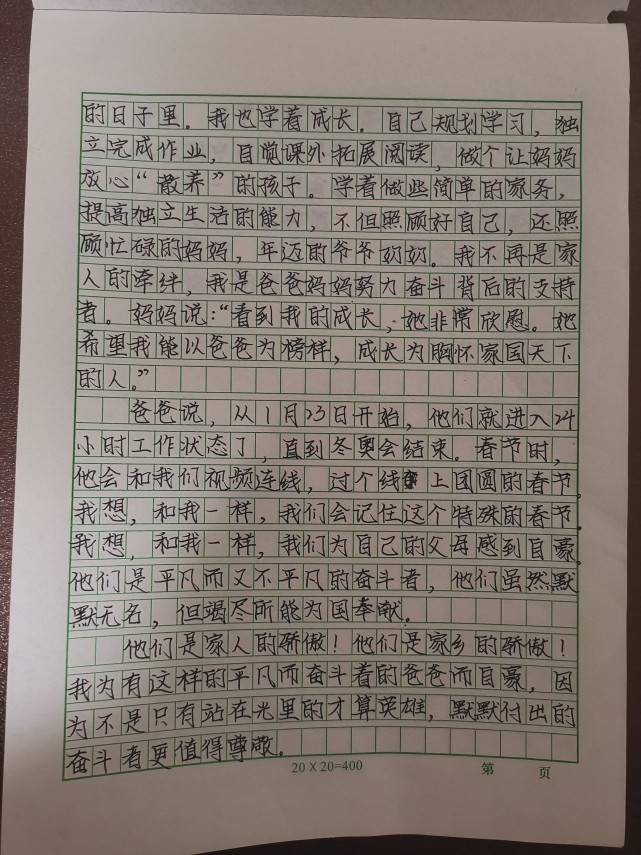 的日子里。我也学着成长。自己规划学习，独
立完成作业，自觉课外拓展阅读，做个让妈妈
放心“散养”的孩子。学着做些简单的家务，
提高独立生活的能力，不但照顾好自己，还照
顾忙碌的妈妈，年迈的爷爷奶奶。我不再是家
人的牵绊，我是爸爸妈妈努力奋斗背后的支持
者。妈妈说：“看到我的成长，她非常欣慰。她
希望我能以爸爸为榜样，成长为胸怀家国天下
的人。”
爸爸说，从1月23日开始，他们就进入24
小时工作状态了，直到冬奥会结束。春节时，
他会和我们视频连线，过个线上团圆的春节。
我想，和我一样，我们会记住这个特殊的春节。
我想，和我一样，我们为自己的父母感到自豪。
他们是平凡而又不平凡的奋斗者，他们虽然默
默无名，但竭尽所能为国奉献。
他们是家人的骄傲！他们是家乡的骄傲！
我为有这样的平凡而奋斗着的爸爸而自豪，因
为不是只有站在光里的才算英雄，默默付出的
奋斗者更值得尊敬。
20×20=400 第 页